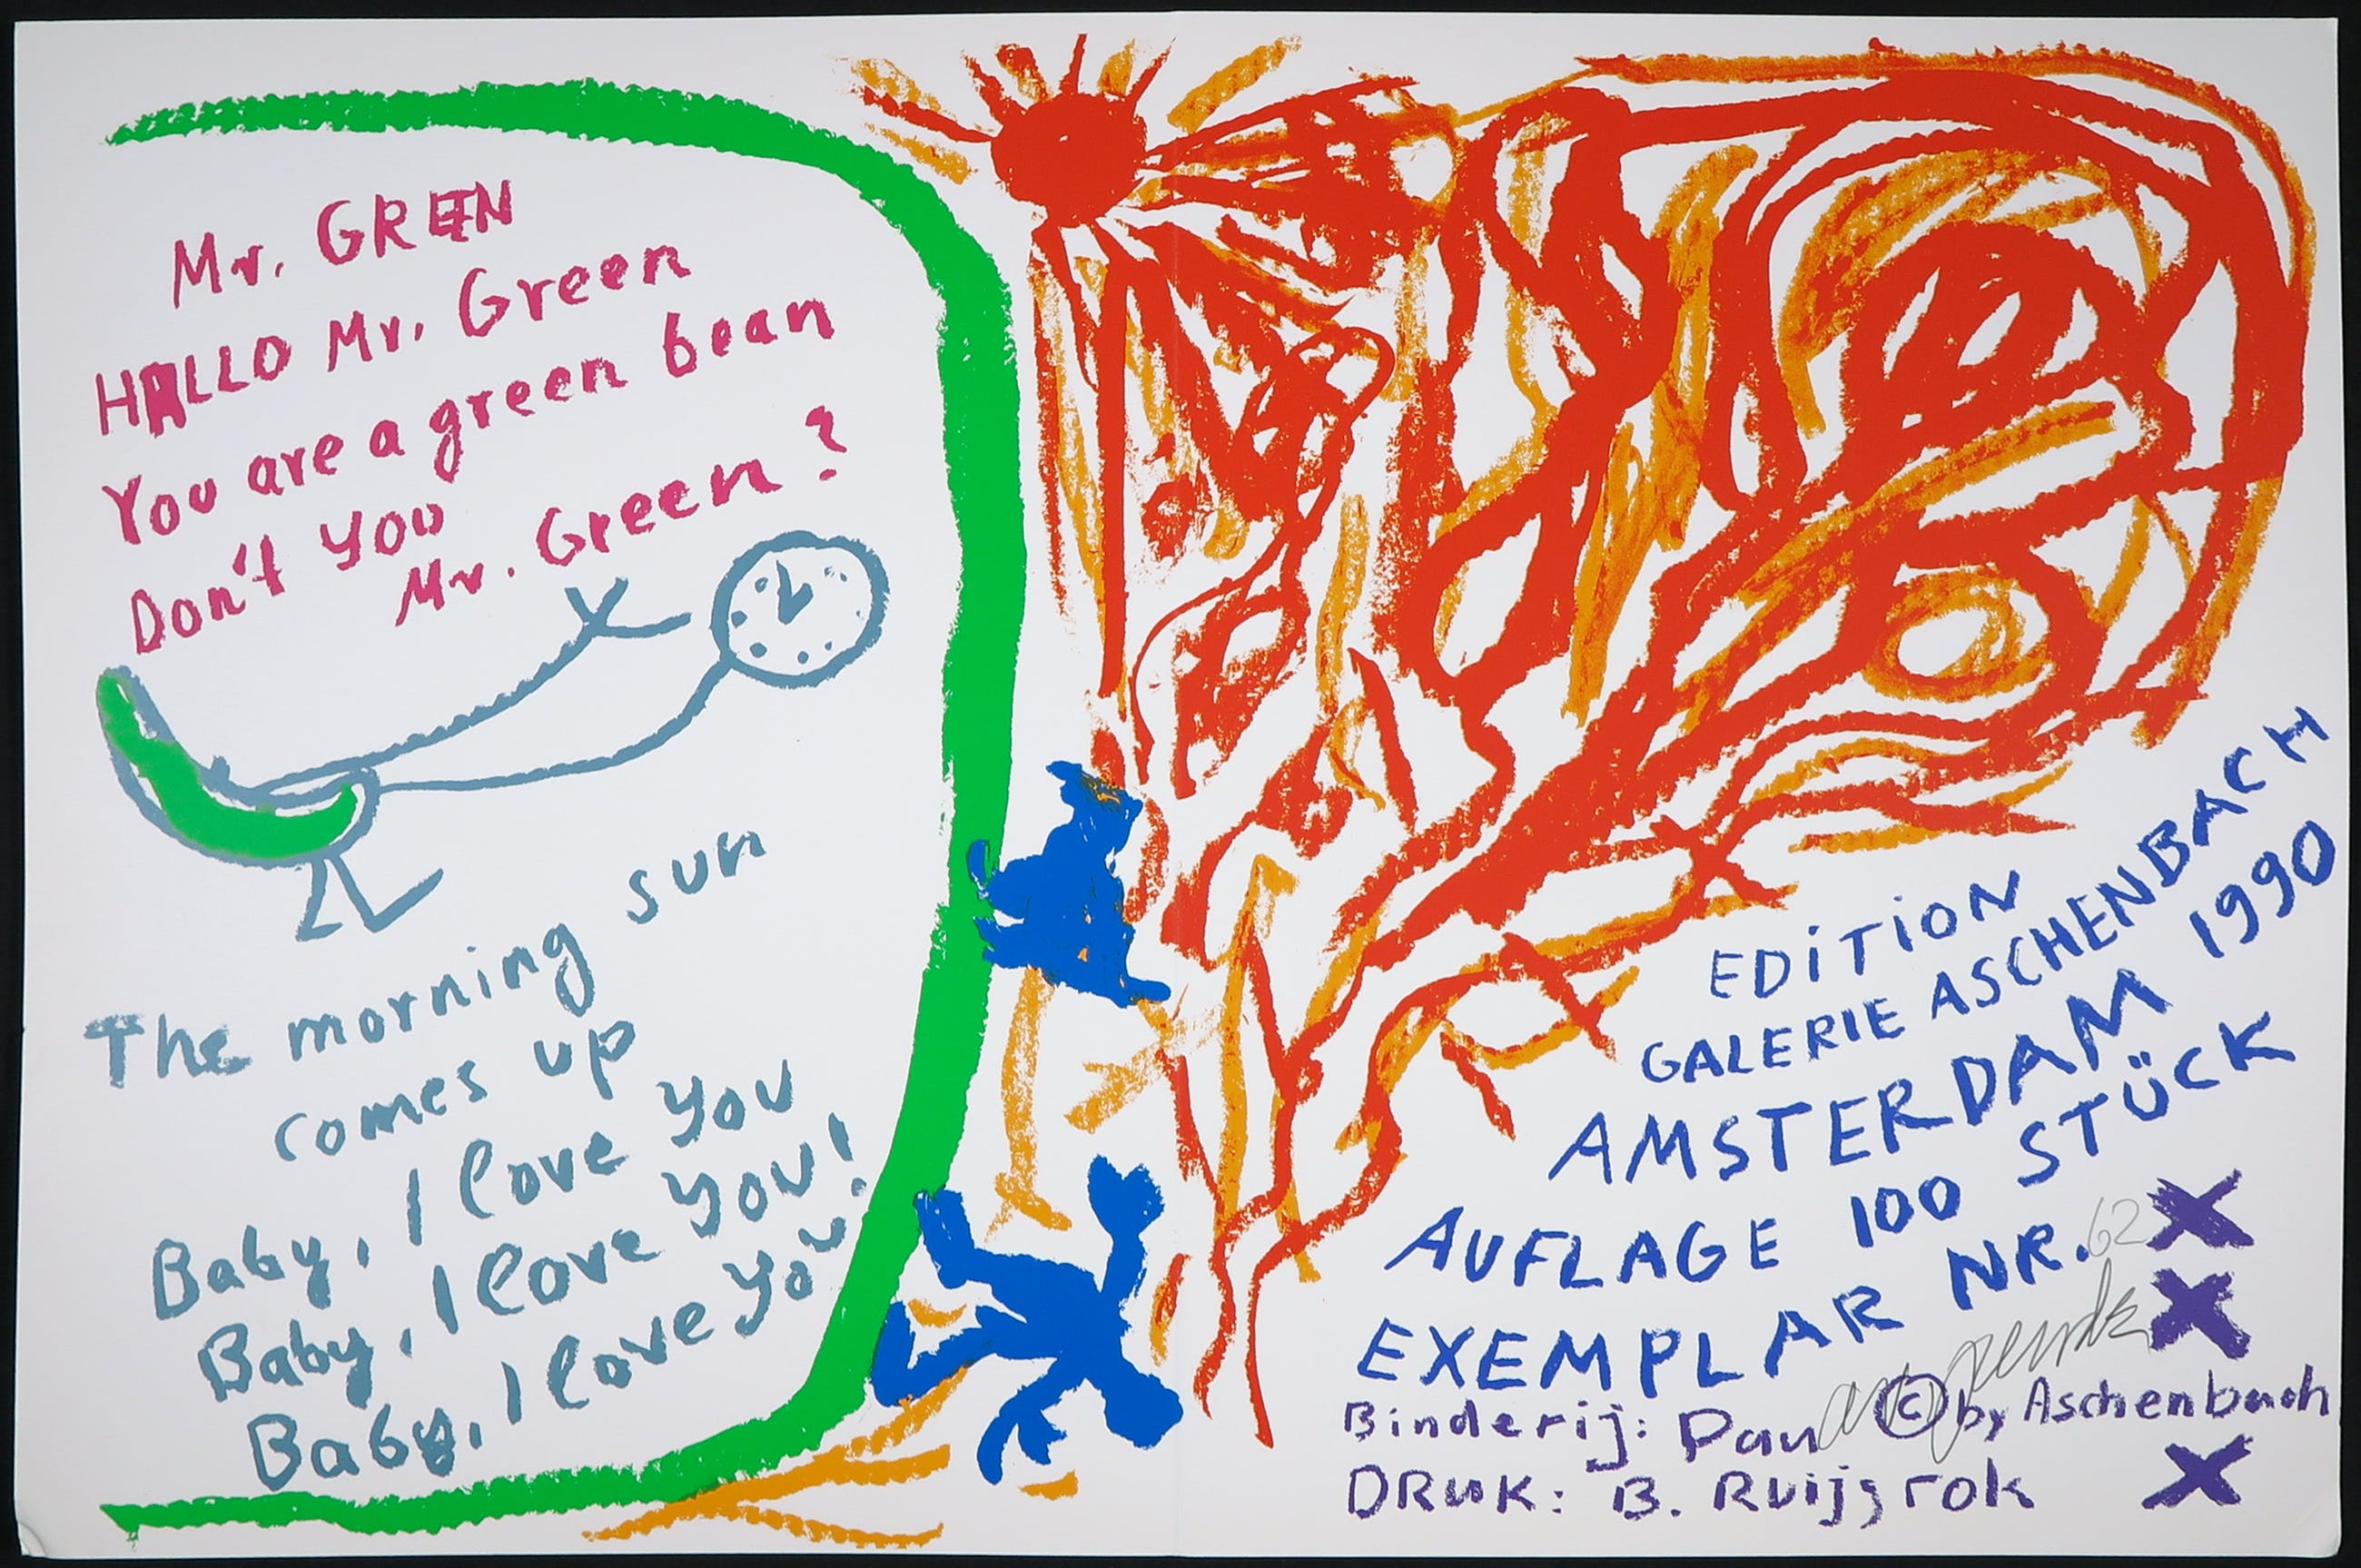 Mr. GREEN
HALLO Mr. Green
You are a green bean
Don't you
Mr. Green?
The morning sun
comes up
Baby, I love you
Baby, I love you!
Baby, I love you
EDiTiON
GALERIE ASCHENBACH
AMSTERDAM 1990
AUFLAGE 100 STÜCK
EXEMPLAR NR. 62
ar. penck
Binderij: Pau © by Aschenbach
DRUK: B. Ruijgrok